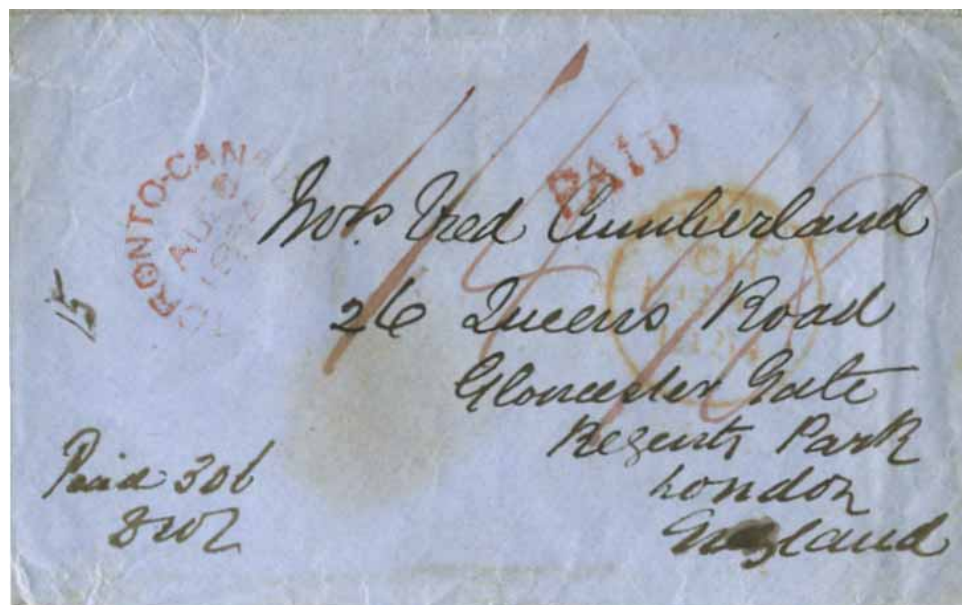 TORONTO-CANADA
AU
1854
PAID
Mrs. Fred Cumberland
26 Queens Road
Gloucester Gate
Regents Park
London
England
15
Paid 30